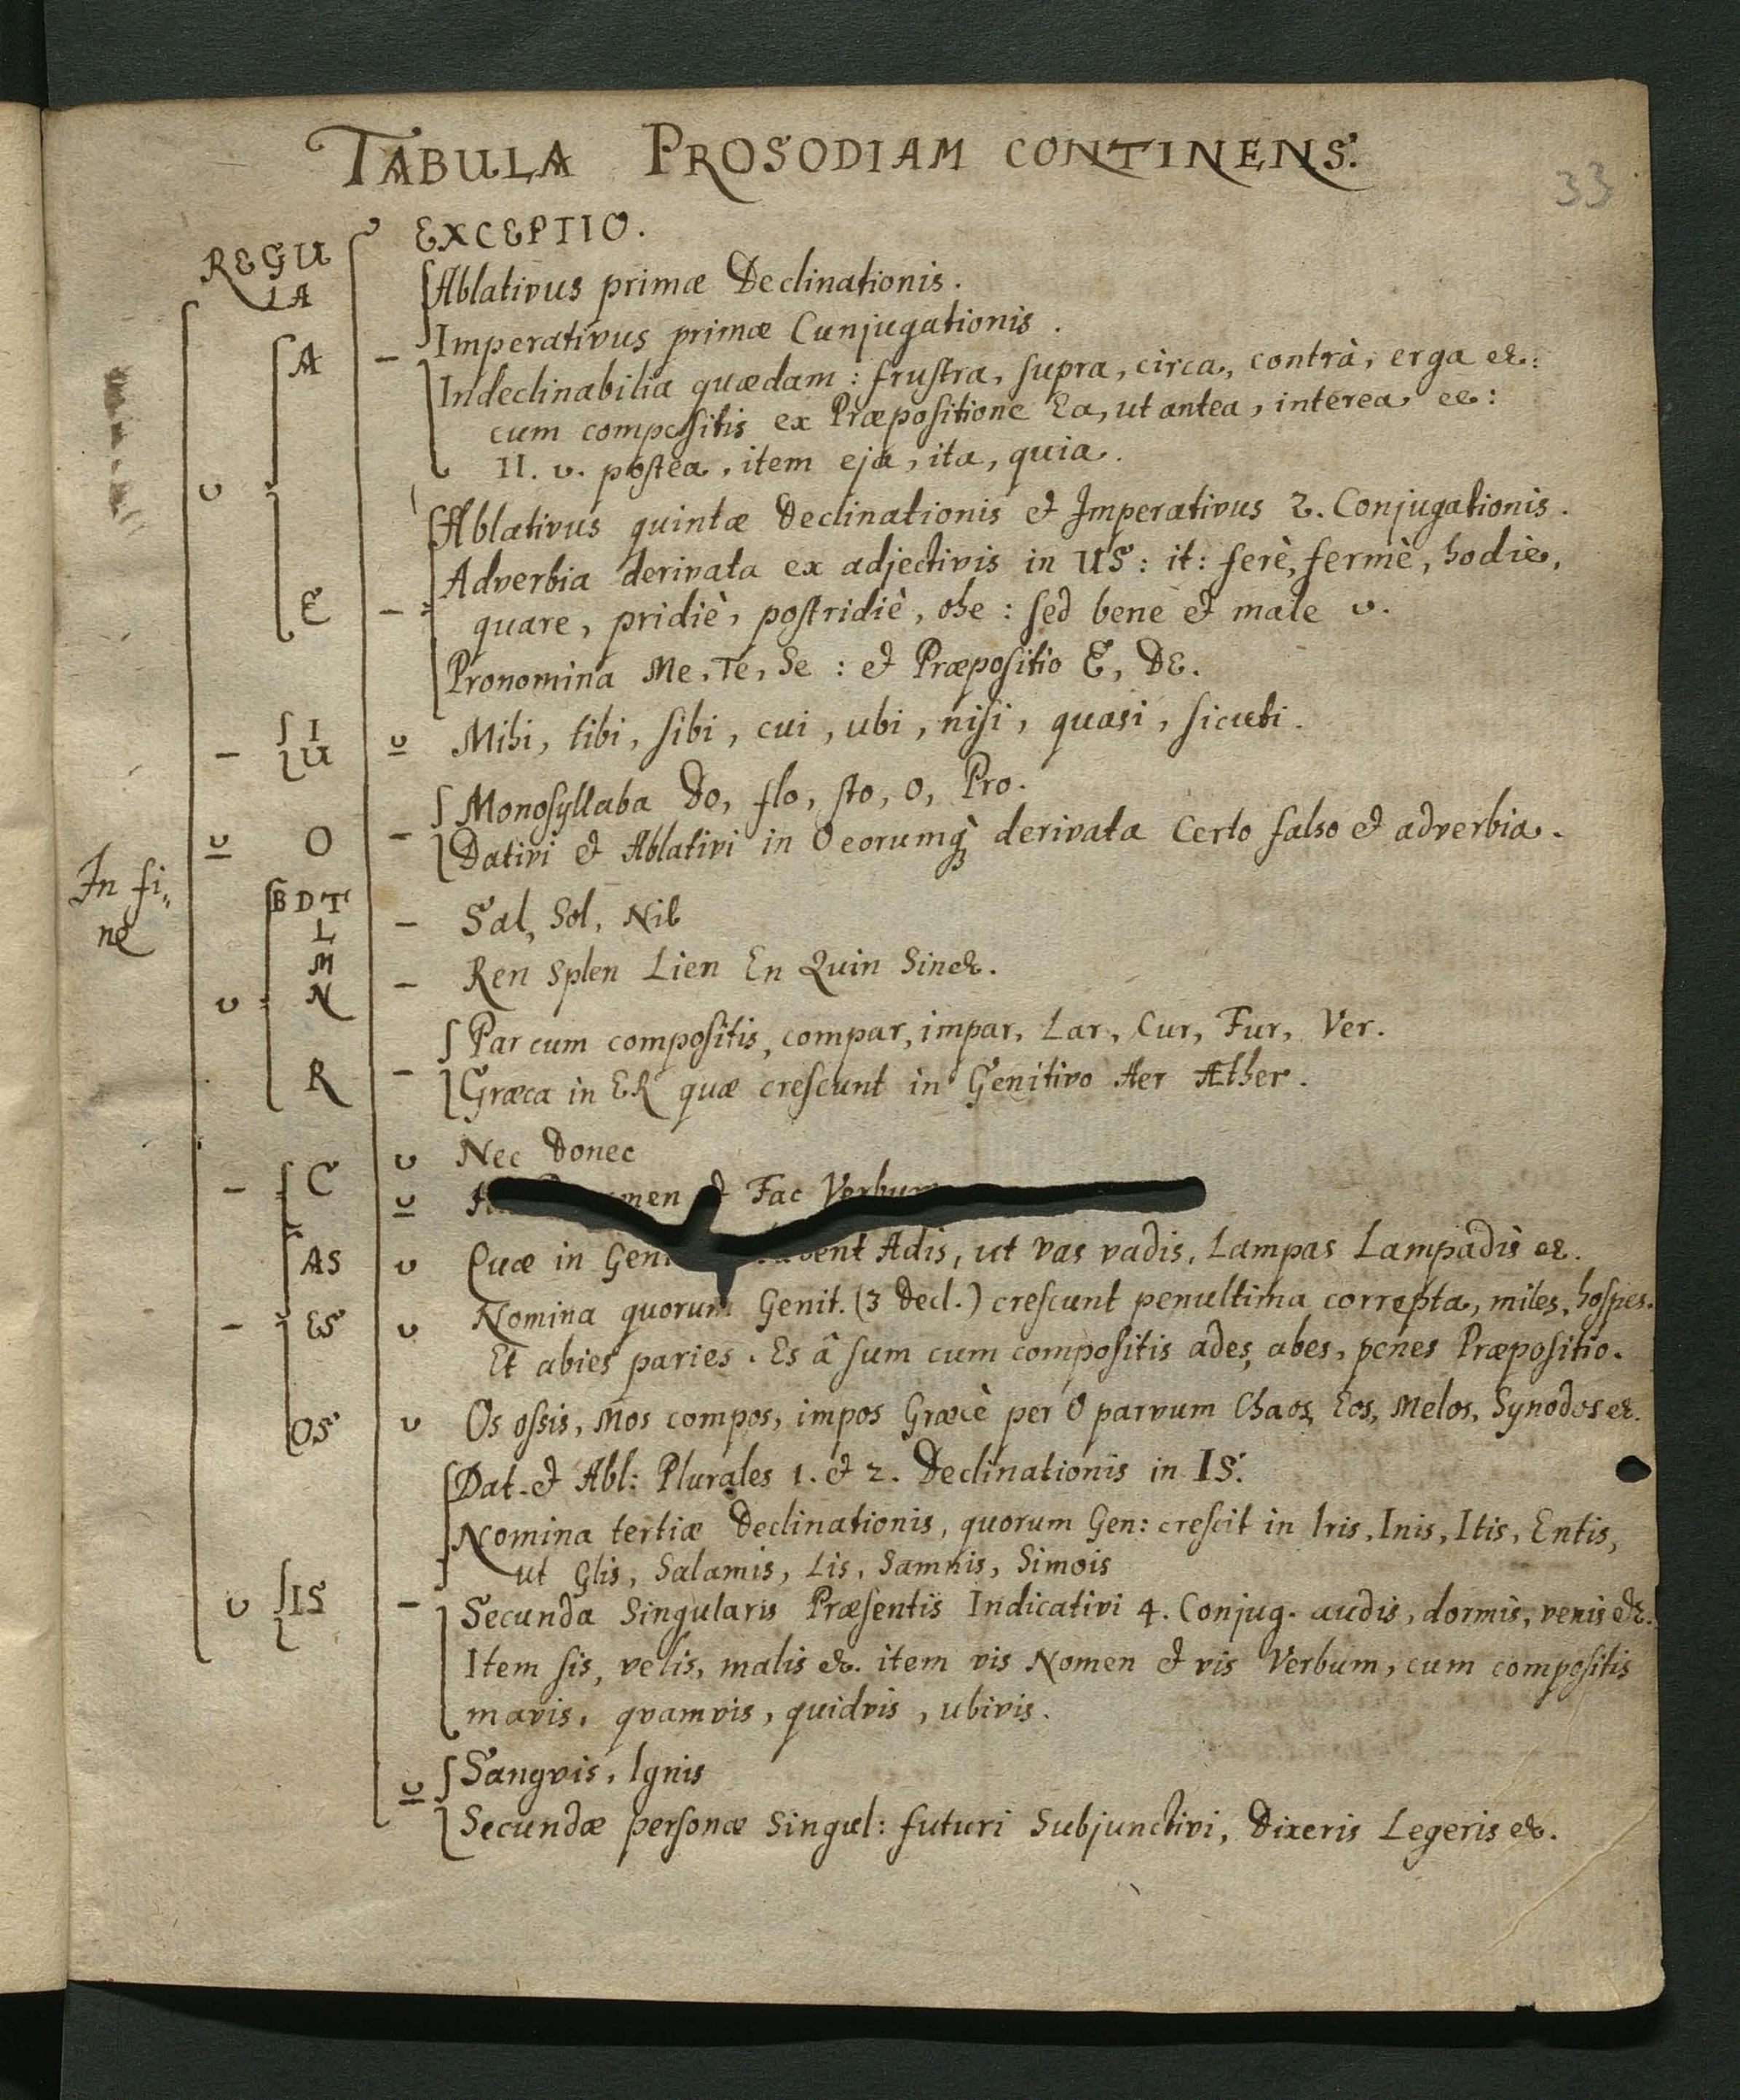 TABULA PROSODIAM CONTINENS.
33
REGU
LA
EXCEPTIO.
Ablativus primæ Declinationis.
Imperativus primæ Cunjugationis.
A –
Indeclinabilia quædam: frustra, supra, circa, contrà, erga &c:
cum compositis ex Præpositione Ea, ut antea, interea &c:
II. υ. postea, item eja, ita, quia.
υ
Ablativus quintæ Declinationis & Imperativus 2. Conjugationis.
Adverbia derivata ex adjectivis in US: it: ferè, fermè, hodie,
E –
quare, pridiè, postridiè, ohe: sed bene & male υ.
Pronomina Me, Te, Se: & Præpositio E, DE.
– I U υ Mihi, tibi, sibi, cui, ubi, nisi, quasi, sicubi.
Monosyllaba Do, flo, sto, O, Pro.
υ O –
Dativi & Ablativi in O eorumq; derivata Certo falso & adverbia.
In fi,,
ne
B D T
L – Sal, Sol, Nil
M
υ N – Ren Splen Lien En Quin Sin &c.
Par cum compositis, compar, impar, Lar, Cur, Fur, Ver.
R –
Græca in ER quæ crescunt in Genitivo Aer Æther.
υ Nec Donec
– C υ & Fac
AS υ Quæ in Adis, ut vas vadis, Lampas Lampadis &c.
– ES υ Nomina quorum Genit. (3 Decl.) crescunt penultima correpta, miles, hospes.
Et abies paries. Es â sum cum compositis ades, abes, penes Præpositio.
OS υ Os ossis, Mos compos, impos Græcè per O parvum Chaos, Eos, Melos, Synodos &c.
Dat. & Abl: Plurales 1. & 2. Declinationis in IS.
Nomina tertiæ Declinationis, quorum Gen: crescit in Iris, Inis, Itis, Entis,
ut Glis, Salamis, Lis, Samnis, Simois
υ IS – Secunda Singularis Præsentis Indicativi 4. Conjug. audis, dormis, venis &c.
Item sis, velis, malis &c. item vis Nomen & vis Verbum, cum compositis
mavis, qvamvis, quidvis, ubivis.
υ Sangvis, Ignis
Secundæ personæ Singul: futuri Subjunctivi, Dixeris Legeris &c.